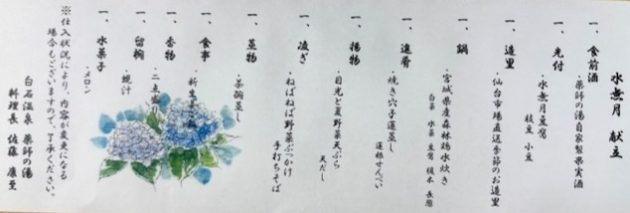 水無月 献立
一、食前酒
・薬師の湯自家製果実酒
一、先付
・水無月豆腐
枝豆 小豆
一、造里
・仙台市場直送季節のお造里
一、鍋
・宮城県産森林鶏水炊き
白菜 水菜 豆腐 榎木 長葱
一、進肴
・焼き穴子蓮蒸し
蓮根せんべい
一、揚物
・目光と夏野菜天ぷら
天だし
一、凌ぎ
・ねばねば野菜ぶっかけ
手打ちそば
一、蒸物
・茶碗蒸し
一、食事
一、香物
・二点盛り
一、留椀
・呉汁
一、水菓子
・メロン
※仕入状況により、内容が変更になる
場合もございますので、了承ください。
白石温泉 薬師の湯
料理長 佐藤